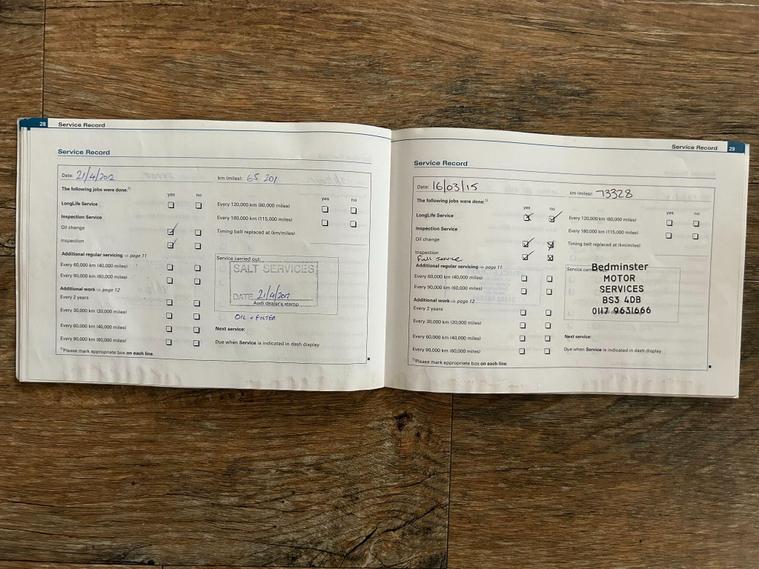 28 Service Record
Service Record
Date: 21/4/2012 km (miles): 65 201
The following jobs were done:1)
yes no
LongLife Service
Inspection Service
Oil change
Inspection
Additional regular servicing ⇒ page 11
Every 60,000 km (40,000 miles)
Every 90,000 km (60,000 miles)
Additional work ⇒ page 12
Every 2 years
Every 30,000 km (20,000 miles)
Every 60,000 km (40,000 miles)
Every 90,000 km (60,000 miles)
1)Please mark appropriate box on each line
yes no
Every 120,000 km (80,000 miles)
Every 180,000 km (115,000 miles)
Timing belt replaced at (km/miles)
Service carried out:
SALT SERVICES
DATE 21/4/2012
Audi dealer's stamp
OIL + FILTER
Next service:
Due when Service is indicated in dash display
Service Record 29
Service Record
Date: 16/03/15 km (miles): 73328
The following jobs were done:1)
yes no
LongLife Service
Inspection Service
Oil change
Inspection
Full service
Additional regular servicing ⇒ page 11
Every 60,000 km (40,000 miles)
Every 90,000 km (60,000 miles)
Additional work ⇒ page 12
Every 2 years
Every 30,000 km (20,000 miles)
Every 60,000 km (40,000 miles)
Every 90,000 km (60,000 miles)
1)Please mark appropriate box on each line
yes no
Every 120,000 km (80,000 miles)
Every 180,000 km (115,000 miles)
Timing belt replaced at (km/miles)
Service carried
Bedminster
MOTOR
SERVICES
BS3 4DB
0117 9631666
Next service:
Due when Service is indicated in dash display